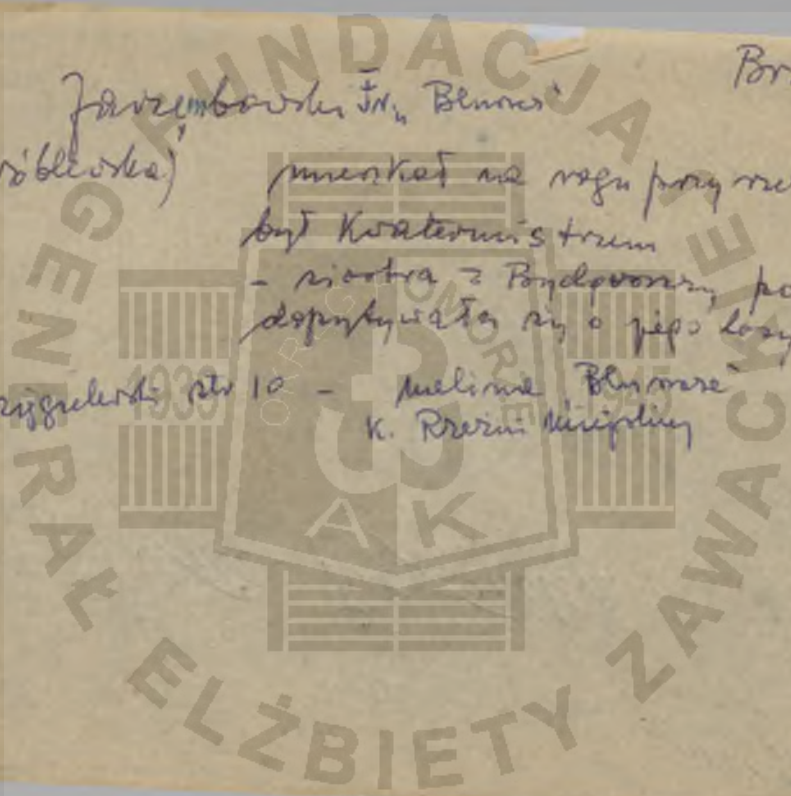 Br
Jarzembowski Fr. "Blusze"
róblewska) mieszkał na rogu przy rze
był Kwatermistrzem
- siostra z Bydgoszczy po
dopytywała się o jego losy
str 10 - melina
k. Rzeźni Miejskiej
FUNDACJA GENERAŁ ELŻBIETY ZAWACKIEJ
POMORZE
1939 1945
AK